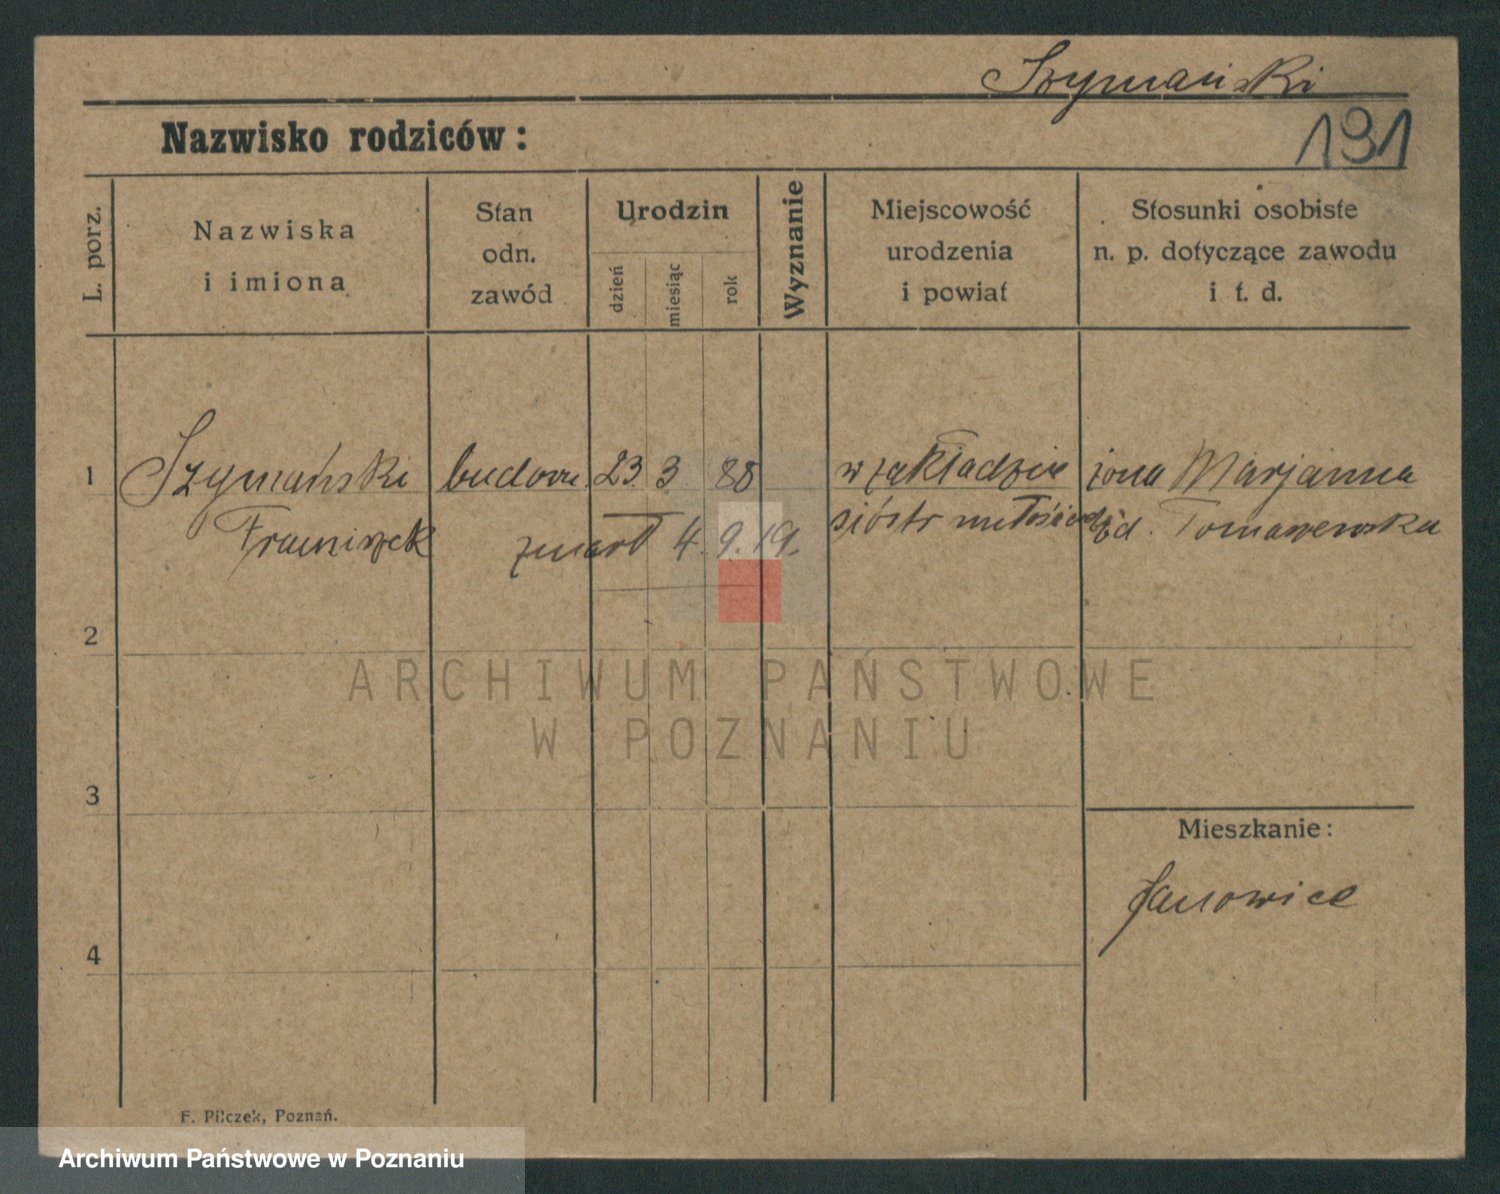 Szymański
Nazwisko rodziców:
191
L. porz.
Nazwiska
i imiona
Stan
odn.
zawód
Urodzin
dzień
miesiąc
rok
Wyznanie
Miejscowość
urodzenia
i powiat
Stosunki osobiste
n. p. dotyczące zawodu
i t. d.
1 Szymański budown. 23. 3 88 w zakładzie żona Marjanna
Franciszek zmarł 4. 9. 19. sióstr miłosierdzia Tomaszewska
2
ARCHIWUM PAŃSTWOWE
W POZNANIU
3
Mieszkanie:
Janowice
4
F. Pilczek, Poznań.
Archiwum Państwowe w Poznaniu